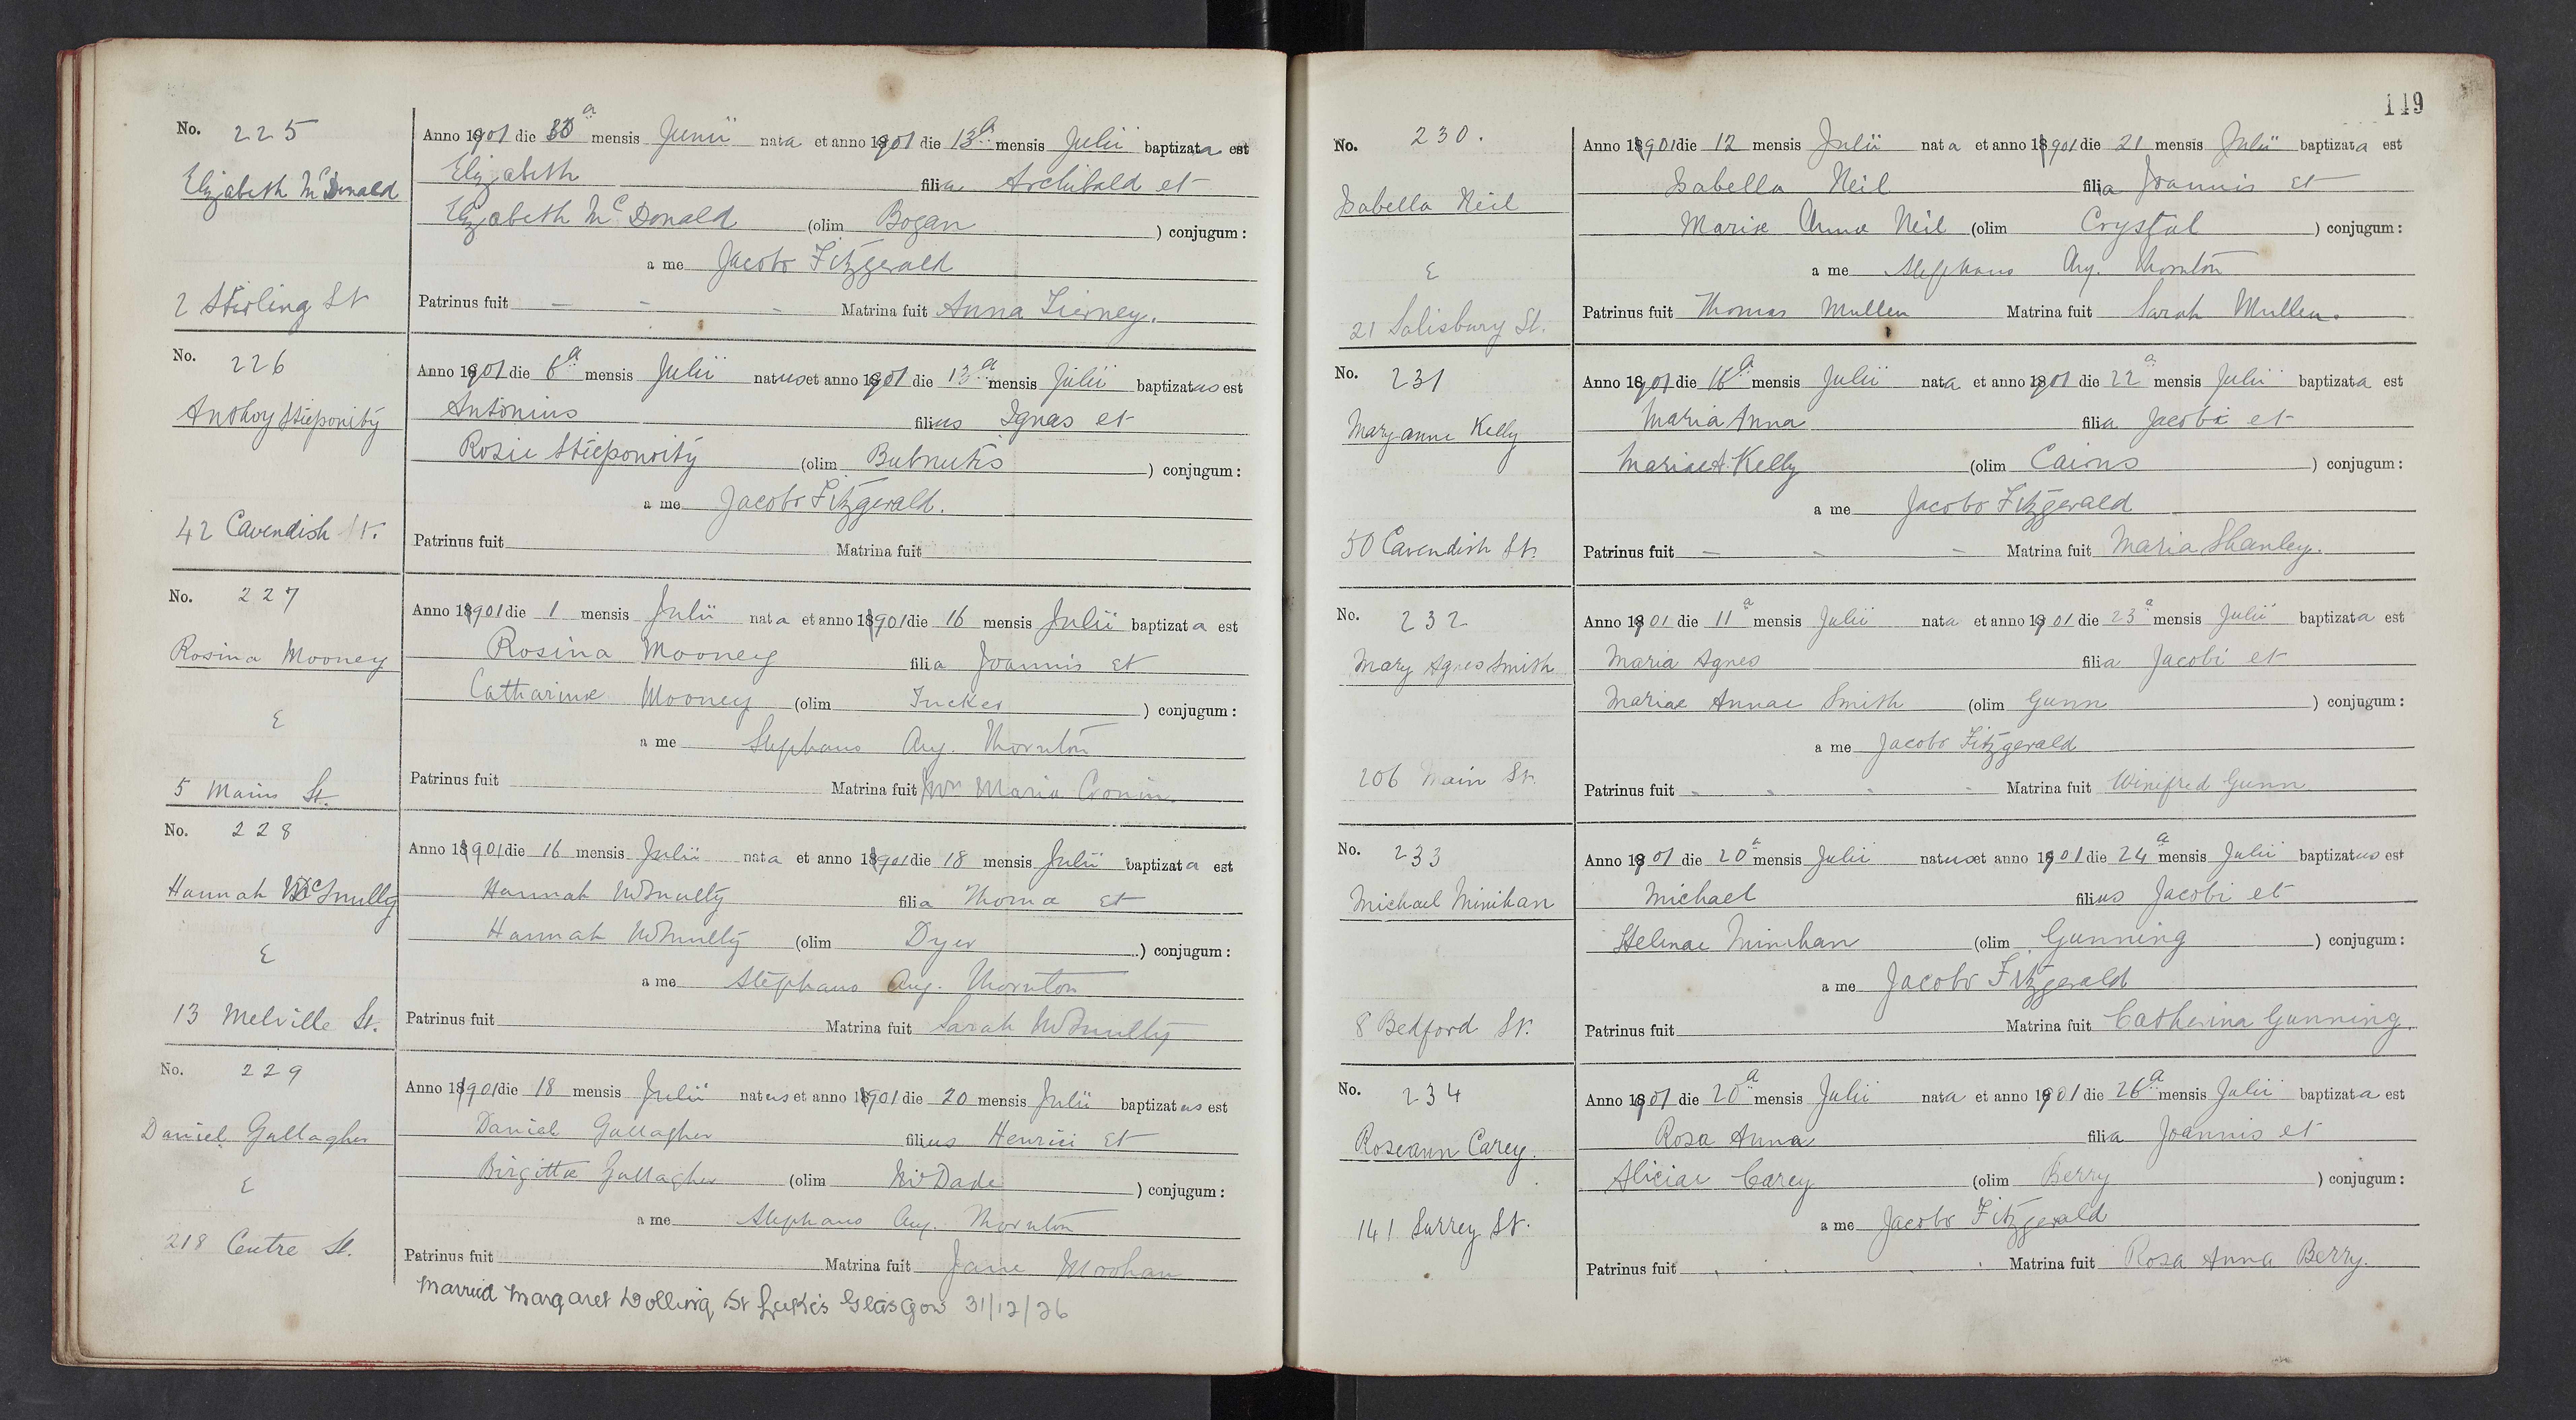 No. 225
Elizabeth McDonald
2 Stirling St
Anno 1901 die 30a mensis Junii nata et anno 1901 die 13a mensis Julii baptizata est
Elizabeth filia Archibald et
Elizabeth McDonald (olim Bogan) conjugum:
a me Jacobo Fitzgerald
Patrinus fuit - - - Matrina fuit Anna Tierney.
No. 226
Anthoy Stieponity
42 Cavendish St.
Anno 1901 die 6a mensis Julii natus et anno 1901 die 13a mensis Julii baptizatus est
Antonius filius Ignas et
Rosie Stieponoity (olim Butnutis) conjugum:
a me Jacobo Fitzgerald.
Patrinus fuit Matrina fuit
No. 227
Rosina Mooney
E
5 Mains St.
Anno 1901 die 1 mensis Julii nata et anno 1901 die 16 mensis Julii baptizata est
Rosina Mooney filia Joannis et
Catharinæ Mooney (olim Tucker) conjugum:
a me Stephano Aug. Thornton
Patrinus fuit Matrina fuit Maria Cronin.
No. 228
Hannah McAnully
E
13 Melville St.
Anno 1901 die 16 mensis Julii nata et anno 1901 die 18 mensis Julii baptizata est
Hannah McAnulty filia Thoma et
Hannah McAnulty (olim Dyer) conjugum:
a me Stephano Aug. Thornton
Patrinus fuit Matrina fuit Sarah McAnulty
No. 229
Daniel Gallagher
E
218 Centre St.
Anno 1901 die 18 mensis Julii natus et anno 1901 die 20 mensis Julii baptizatus est
Daniel Gallagher filius Henrici et
Birgittæ Gallagher (olim McDade) conjugum:
a me Stephano Aug. Thornton
Patrinus fuit Matrina fuit Jane Moohan
Married Margaret Dolling, St Luke's Glasgow 31/12/26
149
No. 230.
Isabella Neil
E
21 Salisbury St.
Anno 1901 die 12 mensis Julii nata et anno 1901 die 21 mensis Julii baptizata est
Isabella Neil filia Joannis et
Mariæ Annæ Neil (olim Crystal) conjugum:
a me Stephano Aug. Thornton
Patrinus fuit Thomas Mullen Matrina fuit Sarah Mullen.
No. 231
Mary anne Kelly
50 Cavendish St.
Anno 1901 die 16a mensis Julii nata et anno 1901 die 22a mensis Julii baptizata est
Maria Anna filia Jacobi et
Mariae A. Kelly (olim Cairns) conjugum:
a me Jacobo Fitzgerald
Patrinus fuit - - - Matrina fuit Maria Shanley.
No. 232
Mary Agnes Smith
206 Main St.
Anno 1901 die 11a mensis Julii nata et anno 1901 die 23a mensis Julii baptizata est
Maria Agnes filia Jacobi et
Mariae Annae Smith (olim Gunn) conjugum:
a me Jacobo Fitzgerald
Patrinus fuit - - - - Matrina fuit Winifred Gunn
No. 233
Michael Minihan
8 Bedford St.
Anno 1901 die 20a mensis Julii natus et anno 1901 die 24a mensis Julii baptizatus est
Michael filius Jacobi et
Helenae Minihan (olim Gunning) conjugum:
a me Jacobo Fitzgerald
Patrinus fuit Matrina fuit Catherina Gunning.
No. 234
Roseann Carey.
141 Surrey St.
Anno 1901 die 20a mensis Julii nata et anno 1901 die 26a mensis Julii baptizata est
Rosa Anna filia Joannis et
Aliciae Carey (olim Berry) conjugum:
a me Jacobo Fitzgerald
Patrinus fuit . . . . Matrina fuit Rosa Anna Berry.